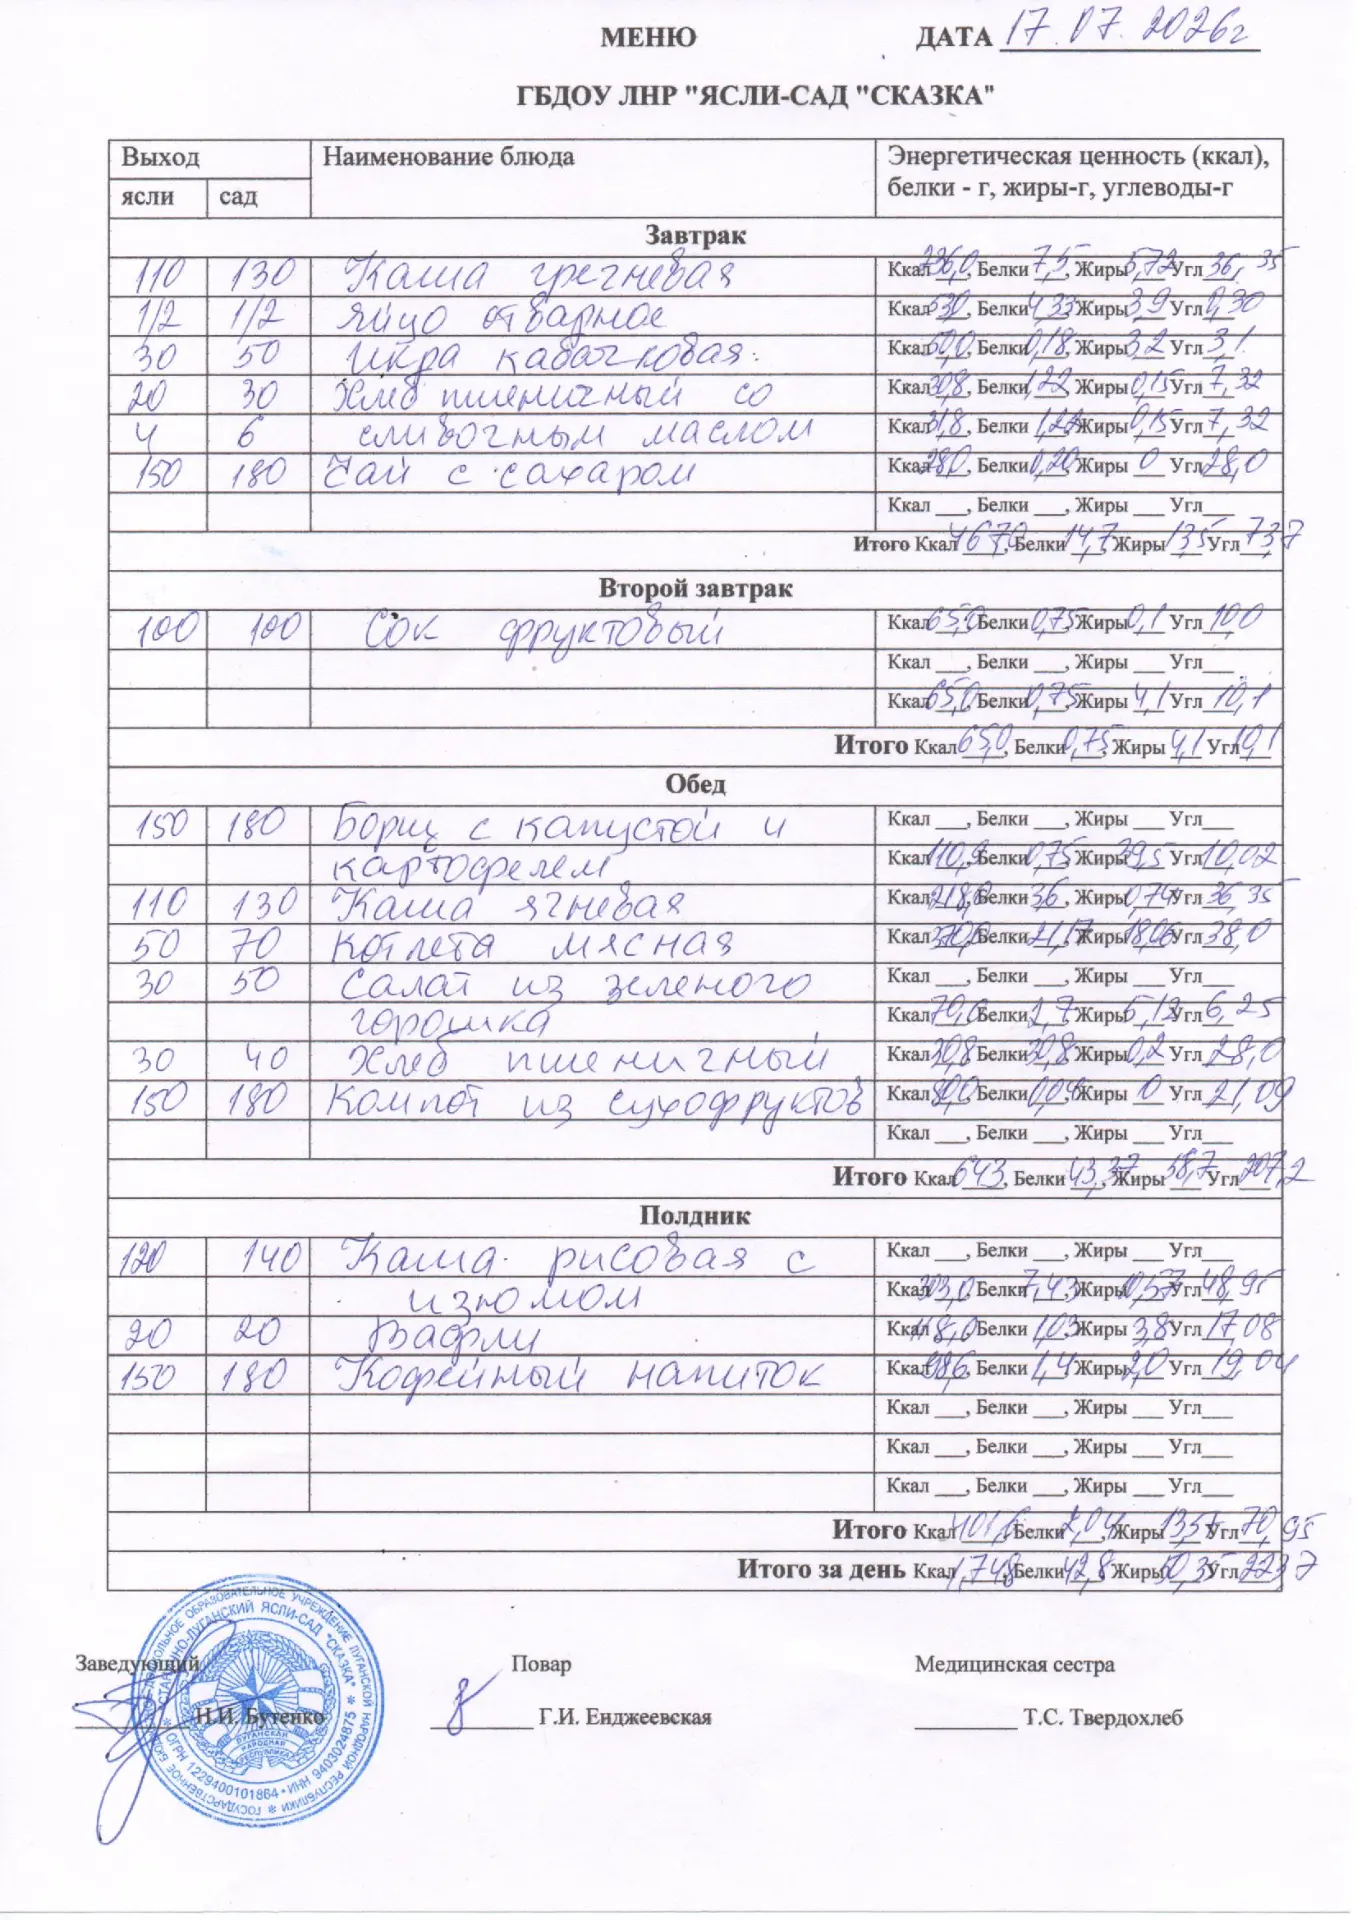 МЕНЮ ДАТА 17.07.2026г
ГБДОУ ЛНР "ЯСЛИ-САД "СКАЗКА"
Выход Наименование блюда Энергетическая ценность (ккал),
ясли сад белки - г, жиры-г, углеводы-г
Завтрак
110 130 Каша гречневая Ккал 236,0, Белки 7,5, Жиры 5,72 Угл 36,35
1/2 1/2 Яйцо отварное Ккал, Белки 4,33 Жиры 3,9 Угл 0,30
30 50 Икра кабачковая. Ккал, Белки 0,18, Жиры 3,2 Угл 3,1
20 30 Хлеб пшеничный со Ккал 30,8, Белки 1,22, Жиры 0,15 Угл 7,32
4 6 сливочным маслом Ккал 31,8, Белки 1,22 Жиры 0,15 Угл 7,32
150 180 Чай с сахаром Ккал 28,0, Белки 0,20 Жиры 0 Угл 28,0
Ккал ___, Белки ___, Жиры ___ Угл___
Итого Ккал 467,0, Белки 14,7, Жиры 13,5 Угл 73,7
Второй завтрак
100 100 Сок фруктовый Ккал 65,0, Белки 0,75, Жиры 0,1 Угл 10,0
Ккал ___, Белки ___, Жиры ___ Угл___
Ккал 65,0, Белки 0,75, Жиры 4,1 Угл 10,1
Итого Ккал 65,0, Белки 0,75, Жиры 4,1 Угл 10,1
Обед
150 180 Борщ с капустой и Ккал ___, Белки ___, Жиры ___ Угл___
картофелем Ккал 110,9, Белки 0,75, Жиры Угл 10,02
110 130 Каша ячневая Ккал 218,0, Белки 3,6, Жиры 0,74 Угл 36,35
50 70 Котлета мясная Ккал 370,0, Белки 21,17 Жиры 18,06 Угл 38,0
30 50 Салат из зеленого Ккал ___, Белки ___, Жиры ___ Угл___
горошка Ккал 70,0, Белки, Жиры 5,12 Угл 6,25
30 40 Хлеб пшеничный Ккал 30,8, Белки 30,8, Жиры 0,2 Угл 28,0
150 180 Компот из сухофруктов Ккал 80,0, Белки 0,04, Жиры 0 Угл 21,09
Ккал ___, Белки ___, Жиры ___ Угл___
Итого Ккал 643, Белки 43,37, Жиры 38,7 Угл 207,2
Полдник
120 140 Каша рисовая с Ккал ___, Белки ___, Жиры ___ Угл___
изюмом Ккал 303,0, Белки 7,43, Жиры 10,57 Угл 48,95
20 20 Вафли Ккал, Белки 1,03, Жиры 3,8 Угл 17,08
150 180 Кофейный напиток Ккал 98,6, Белки 1,4, Жиры 2,0 Угл 19,04
Ккал ___, Белки ___, Жиры ___ Угл___
Ккал ___, Белки ___, Жиры ___ Угл___
Ккал ___, Белки ___, Жиры ___ Угл___
Итого Ккал 401,6, Белки 2,04, Жиры 13,55 Угл 70,95
Итого за день Ккал 1,748, Белки 42,8, Жиры 50,35 Угл 223,7
Заведующий Повар Медицинская сестра
Н.И. Бутенко Г.И. Енджеевская Т.С. Твердохлеб
ЯСЛИ-САД "СКАЗКА"
ЛУГАНСКАЯ НАРОДНАЯ РЕСПУБЛИКА
ОГРН 1229400101864 * ИНН 9403024875